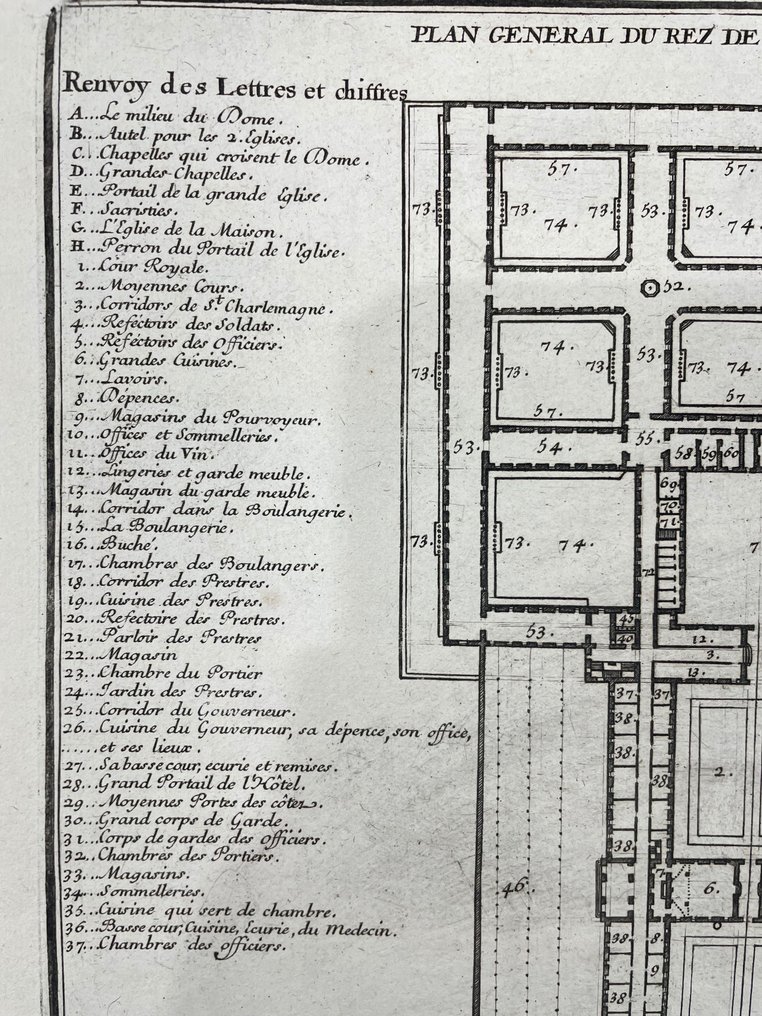 PLAN GENERAL DU REZ DE
Renvoy des Lettres et chiffres
A...Le milieu du Dome.
B...Autel pour les 2. Eglises.
C...Chapelles qui croisent le Dome.
D...Grandes Chapelles.
E...Portail de la grande Eglise.
F...Sacristies.
G...L'Eglise de la Maison.
H...Perron du Portail de l'Eglise.
1...Cour Royale.
2...Moyennes Cours.
3...Corridors de St. Charlemagne.
4...Refectoirs des Soldats.
5...Réféctoirs des Officiers.
6...Grandes Cuisines.
7...Lavoirs.
8...Dépences.
9...Magasins du Pourvoyeur.
10...Offices et Sommelleries.
11...Offices du Vin.
12...Lingeries et garde meuble.
13...Magasin du garde meuble.
14...Corridor dans la Boulangerie.
15...La Boulangerie.
16...Buché.
17...Chambres des Boulangers.
18...Corridor des Prestres.
19...Cuisine des Prestres.
20...Refectoire des Prestres.
21...Parloir des Prestres
22...Magasin
23...Chambre du Portier
24...Jardin des Prestres.
25...Corridor du Gouverneur.
26...Cuisine du Gouverneur, sa dépence, son office,
......et ses lieux.
27...Sa basse cour, ecurie et remises.
28...Grand Portail de l'Hôtel.
29...Moyennes Portes des côtez.
30...Grand corps de Garde.
31...Corps de gardes des Officiers.
32...Chambres des Portiers.
33...Magasins.
34...Sommelleries.
35...Cuisine qui sert de chambre.
36...Basse cour, Cuisine, Ecurie, du Medecin.
37...Chambres des officiers.
57. 57.
73. 73. 73. 53. 73.
74. 74.
52.
74. 53. 74.
73. 73. 73. 73.
57. 57
53. 54. 55. 58 59 60
69
70
71
73. 73. 74. 7
72
53. 45
40 12.
3.
13.
37. 37.
38.
38. 38
2.
38
46. 7 6.
38 8.
9
38